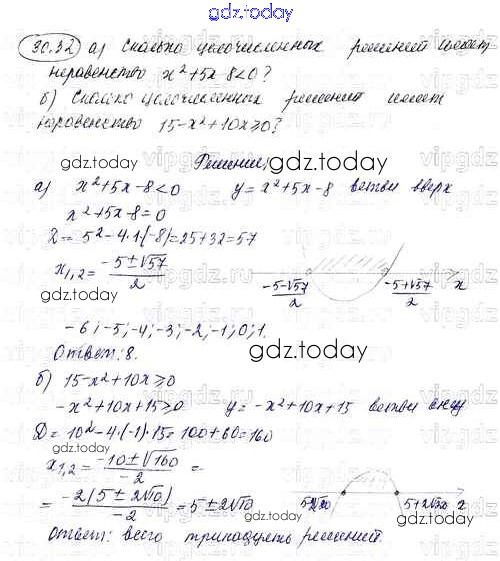 gdz.today
30.32 а) Сколько целочисленных решений имеет
неравенство x²+5x-8<0?
б) Сколько целочисленных решений имеет
неравенство 15-x²+10x≥0?
gdz.today
Решение,
gdz.today
а) x²+5x-8<0 y=x²+5x-8 ветви вверх
x²+5x-8=0
D=5²-4·1·(-8)=25+32=57
x₁,₂=(-5±√57)/2
(-5-√57)/2 (-5+√57)/2 x
gdz.today
-6;-5;-4;-3;-2;-1;0;1.
gdz.today
Ответ: 8.
б) 15-x²+10x≥0
-x²+10x+15≥0 y=-x²+10x+15 ветви вниз
gdz.today
D=10²-4·(-1)·15=100+60=160
x₁,₂=(-10±√160)/-2 =
=-2(5±2√10)/-2=5±2√10
5-2√10 5+2√10 x
gdz.today
Ответ: всего тринадцать решений.